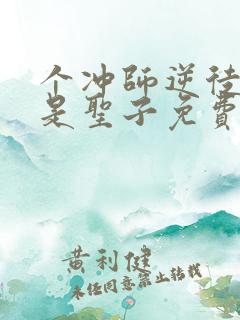 个冲師逆徒
是聖子免費
黄利健
未经同意禁止转载